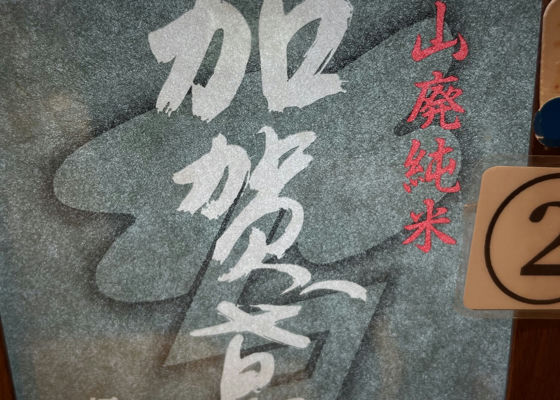 山廃純米
加賀鳶
②